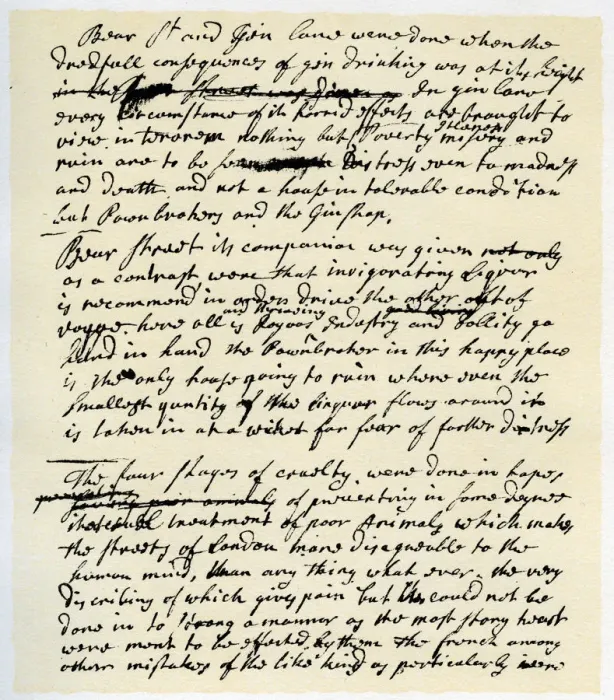 Bear St and Gin Lane were done when the
dredfull consequences of gin drinking was at its hight
in the Street was given a In gin lane
every circumstance of its horrid effects are brought to
view in terorem nothing but Poverty misery and
Idleness
ruin are to be seen Distress even to madness
and death and not a house in tolerable condition
but Pawnbrokers and the Ginshop.
Bear Street its companion was given not only
as a contrast were that invigorating liquor
is recommend in orders drive the other out of
vogue here all is Joyous Industry and Jollity go
and thriveing
hand in hand the Pawnbroker in this happy place
is the only house going to ruin where even the
smallest quntity of the linquer flows around it
is taken in at a wicket for fear of farther distress
The four stages of cruelty were done in hopes
preventing
poor animals of preventing in some degree
treatment of poor Animals which makes
the streets of London more disagreable to the
human mind, than any thing what ever. the very
discribing of which gives pain but it could not be
done in to strong a manner as the most stony heart
were ment to be effected by them the french among
other mistakes of the like kind as particularly were